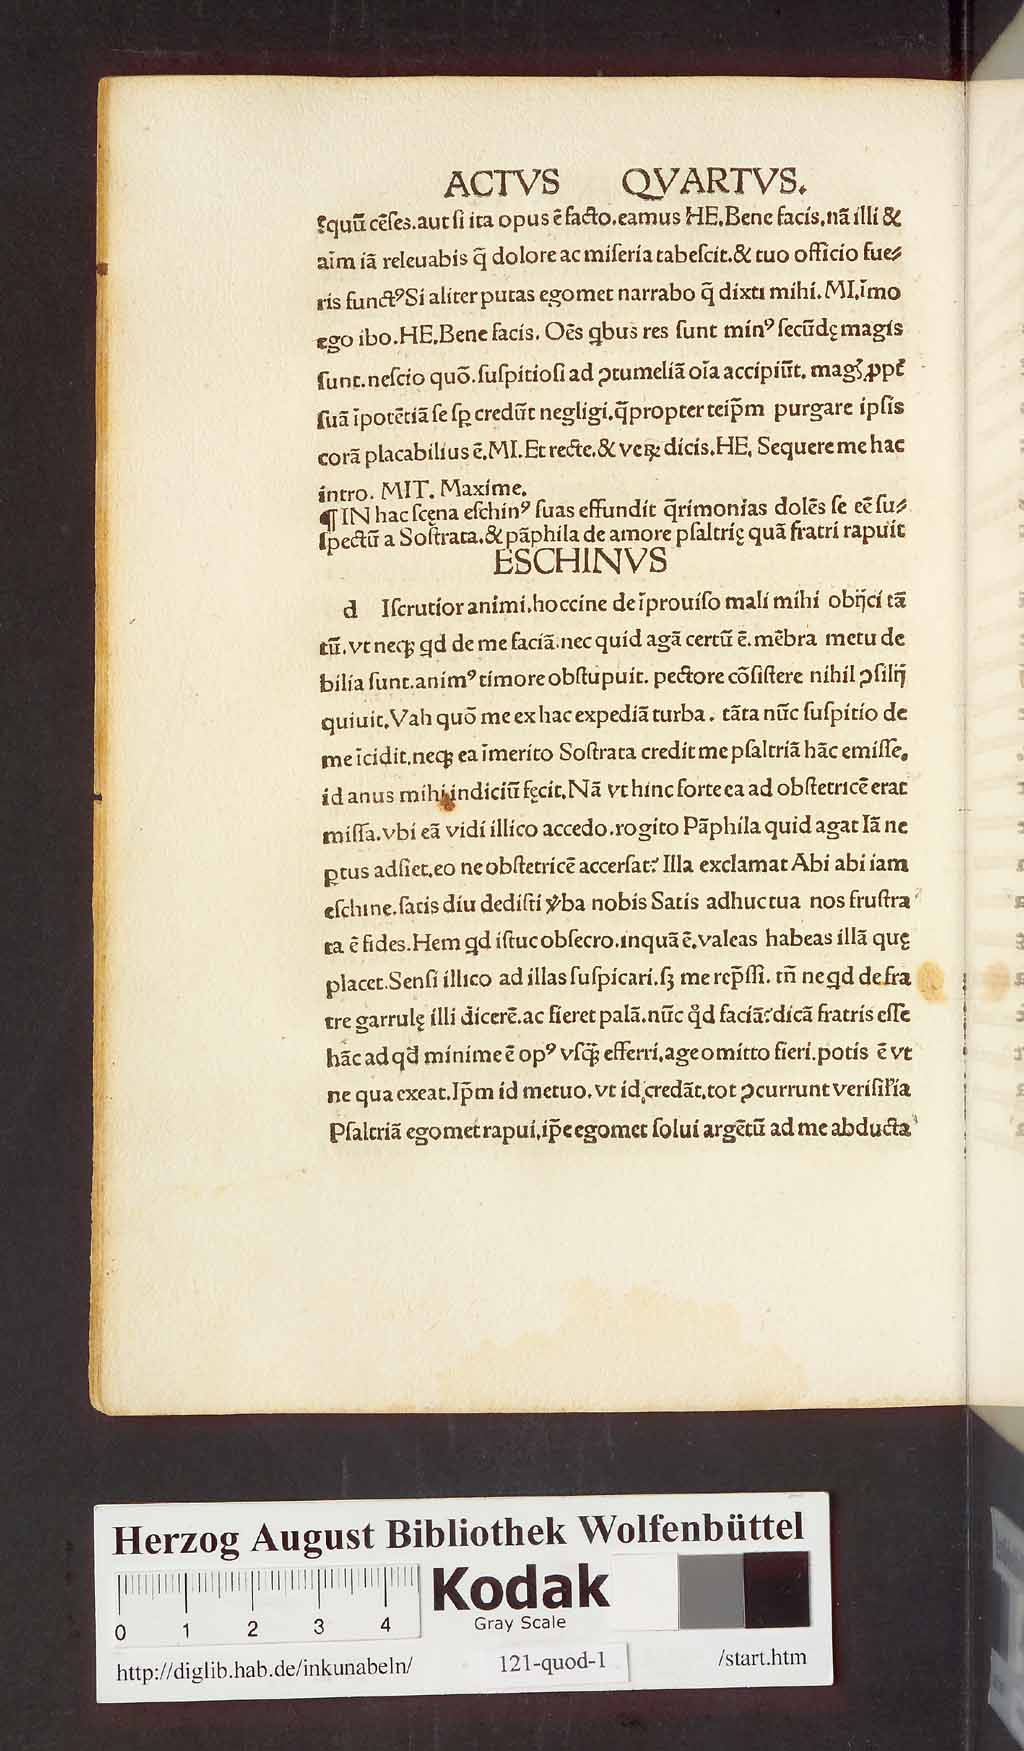 ACTVS QVARTVS.
ęquū cēſes.aut ſi ita opus ē facto.eamus HE.Bene facis.nā illi &
aīm iā releuabis q̄ dolore ac miſeria tabeſcit.& tuo officio fue⸗
ris functꝰ Si aliter putas egomet narrabo q̄ dixti mihi. MI.īmo
ego ibo.HE.Bene facis. Oēs qbus res ſunt minꝰ ſecūdę magis
ſunt.neſcio quō.ſuſpitioſi ad ꝯtumeliā oīa accipiūt. magꝭ ꝓpt̄
ſuā īpotētiā ſe ſꝑ credūt negligi.q̄propter teip̄m purgare ipſis
corā placabilius ē.MI.Et recte.& veꝝ dicis.HE. Sequere me hac
intro. MIT. Maxime.
¶ IN hac ſcęna eſchinꝰ ſuas effundit q̄rimonias dolēs ſe eē ſu⸗
ſpectū a Soſtrata.& pāphila de amore pſaltrię quā fratri rapuit
ESCHINVS
d Iſcrutior animi.hoccine de īprouiſo mali mihi obijci tā
tū.vt neqꝫ qd de me faciā.nec quid agā certū ē.mēbra metu de
bilia ſunt.animꝰ timore obſtupuit. pectore cōſiſtere nihil ꝯſilij
quiuit.Vah quō me ex hac expediā turba. tāta nūc ſuſpitio de
me īcidit.neqꝫ ea īmerito Soſtrata credit me pſaltriā hāc emiſſe.
id anus mihi indiciū fęcit.Nā vt hinc forte ea ad obſtetricē erat
miſſa.vbi eā vidi illico accedo.rogito Pāphila quid agat Iā ne
ꝑtus adſiet.eo ne obſtetricē accerſat? Illa exclamat Abi abi iam
eſchine.ſatis diu dediſti v̄ba nobis Satis adhuc tua nos fruſtra
ta ē fides.Hem qd iſtuc obſecro.inquā ē.valeas habeas illā quę
placet.Senſi illico ad illas ſuſpicari.ſꝫ me rep̄ſſi. tn̄ ne qd de fra
tre garrulę illi dicerē.ac fieret palā.nūc qd faciā?dicā fratris eſſe
hāc ad qd minime ē opꝰ vſq̄ꝫ efferri.age omitto fieri.potis ē vt
ne qua exeat.Ip̄m id metuo.vt id credāt.tot ꝯcurrunt veriſiłia
Pſaltriā egomet rapui.ip̄e egomet ſolui argētū ad me abducta
Herzog August Bibliothek Wolfenbüttel
Kodak
Gray Scale
0 1 2 3 4
http://diglib.hab.de/inkunabeln/ 121-quod-1 /start.htm